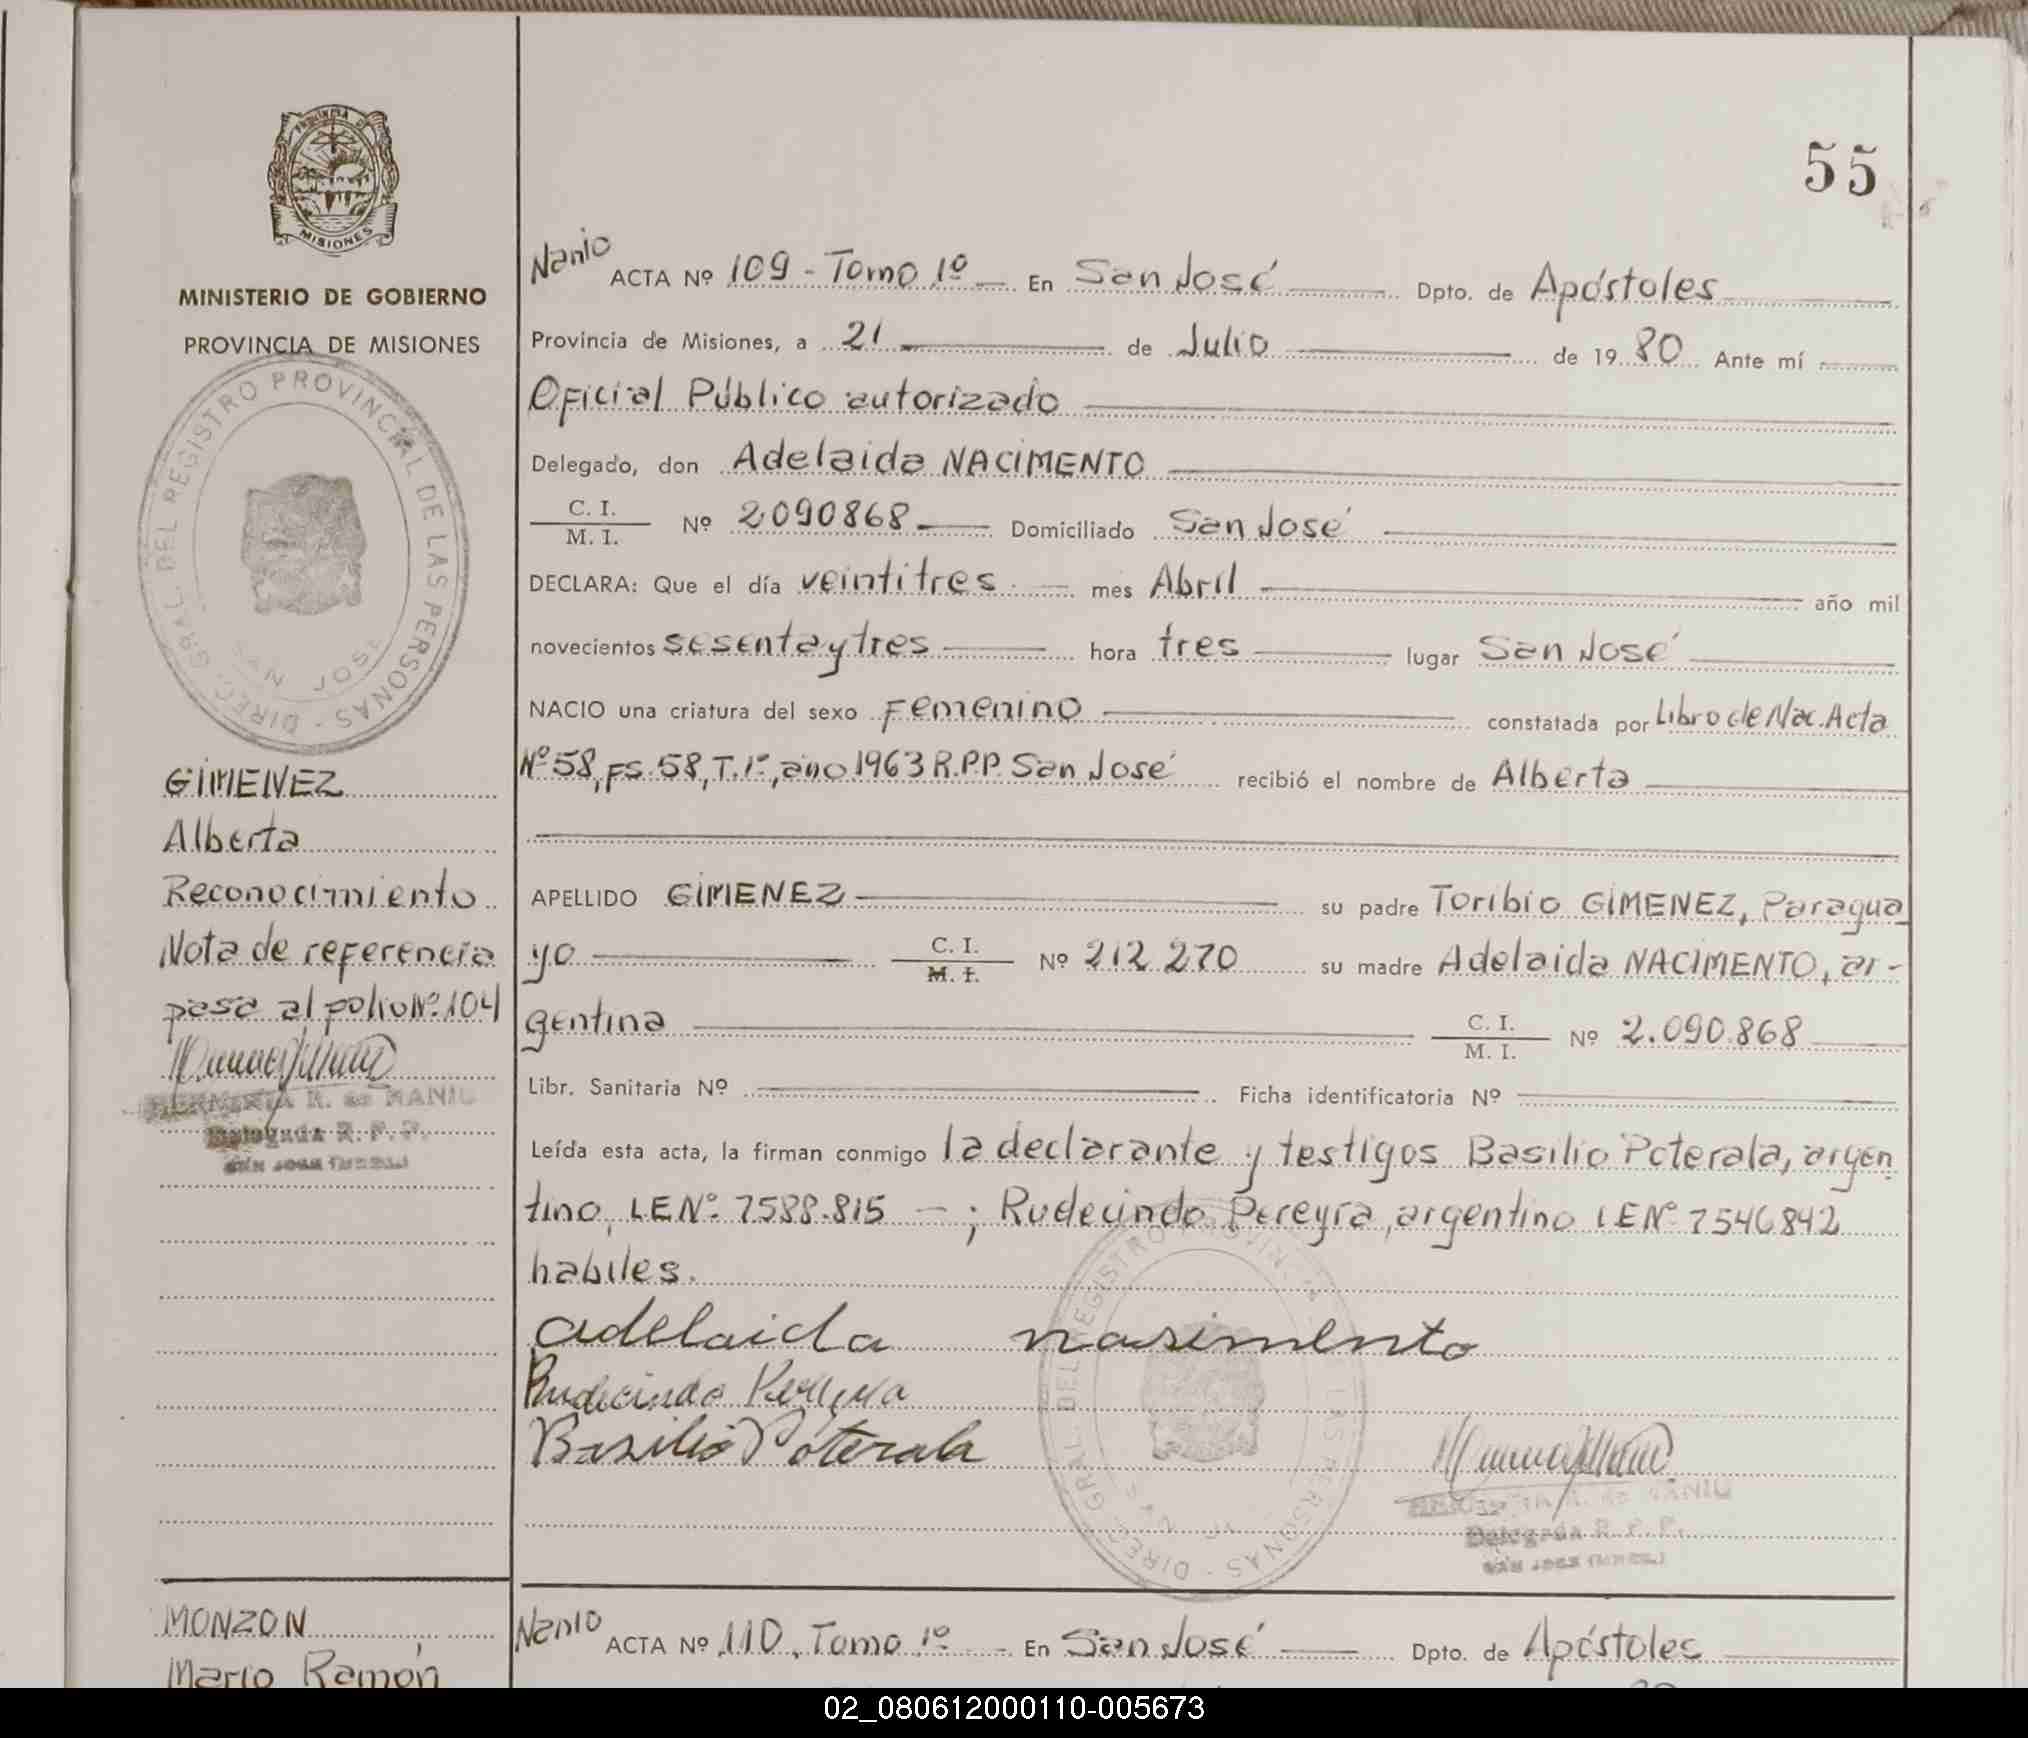 55
PROVINCIA DE
MISIONES
MINISTERIO DE GOBIERNO
PROVINCIA DE MISIONES
DIREC. GRAL. DEL REGISTRO PROVINCIAL DE LAS PERSONAS -
SAN JOSE
GIMENEZ
Alberta
Reconocimiento
Nota de referencia
pasa al folio Nº 104
R. de NANIU
Delegada R. P. P.
Nanio ACTA Nº 109 - Tomo 1º En San José Dpto. de Apóstoles
Provincia de Misiones, a 21 de Julio de 19 80 Ante mí
Oficial Público autorizado
Delegado, don Adelaida NACIMENTO
C. I.
M. I. Nº 2090868 Domiciliado San José
DECLARA: Que el día veintitres mes Abril año mil
novecientos sesenta y tres hora tres lugar San José
NACIO una criatura del sexo Femenino constatada por Libro de Nac. Acta
Nº 58, Fs. 58, T. 1º, año 1963 R.P.P. San José recibió el nombre de Alberta
APELLIDO GIMENEZ su padre Toribio GIMENEZ, Paragua
yo C. I.
M. I. Nº 212.270 su madre Adelaida NACIMENTO, ar-
gentina C. I.
M. I. Nº 2.090.868
Libr. Sanitaria Nº Ficha identificatoria Nº
Leída esta acta, la firman conmigo la declarante y testigos Basilio Poterala, argen
tino, LE Nº 7588.815 - ; Rudecindo Pereyra, argentino LE Nº 7546842
habiles.
adelaida nasimento
Rudecindo Pereyra
Basilio Poterala
DIREC. GRAL. DEL REGISTRO PROVIN LAS PERSONAS -
NANIU
Delegada R. P. P.
MONZON
Mario Ramón
Nanio ACTA Nº 110, Tomo 1º En San José Dpto. de Apóstoles
02_080612000110-005673